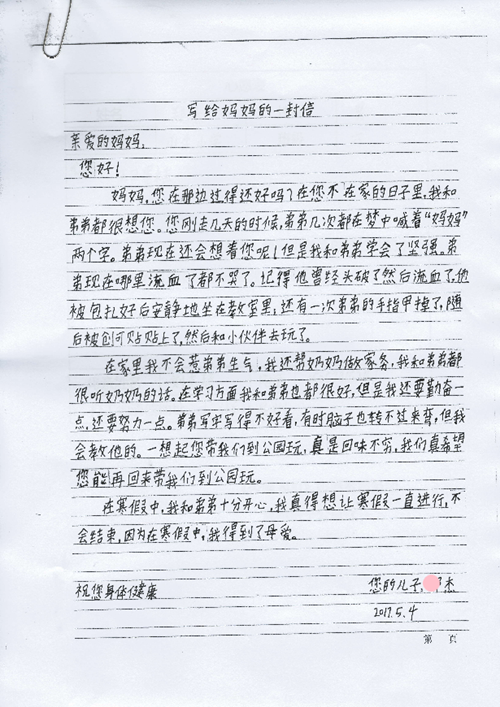 写给妈妈的一封信
亲爱的妈妈:
您好!
妈妈,您在那边过得还好吗?在您不在家的日子里,我和
弟弟都很想您。您刚走几天的时候,弟弟几次都在梦中喊着“妈妈”
两个字。弟弟现在还会想着您呢!但是我和弟弟学会了坚强。弟
弟现在哪里流血了都不哭了。记得他曾经头破了然后流血了,他
被包扎好后安静地坐在教室里,还有一次弟弟的手指甲掉了,随
后被创可贴贴上了,然后和小伙伴去玩了。
在家里我不会惹弟弟生气,我还帮奶奶做家务,我和弟弟都
很听奶奶的话。在学习方面我和弟弟也都很好,但是我还要勤奋一
点,还要努力一点。弟弟写字写得不好看,有时脑子也转不过来弯,但我
会教他的。一想起您带我们到公园玩,真是回味不穷,我们真希望
您能再回来带我们到公园玩。
在寒假中,我和弟弟十分开心,我真得想让寒假一直进行,不
会结束,因为在寒假中,我得到了母爱。
祝您身体健康
您的儿子:杰
2017.5.4
第 页